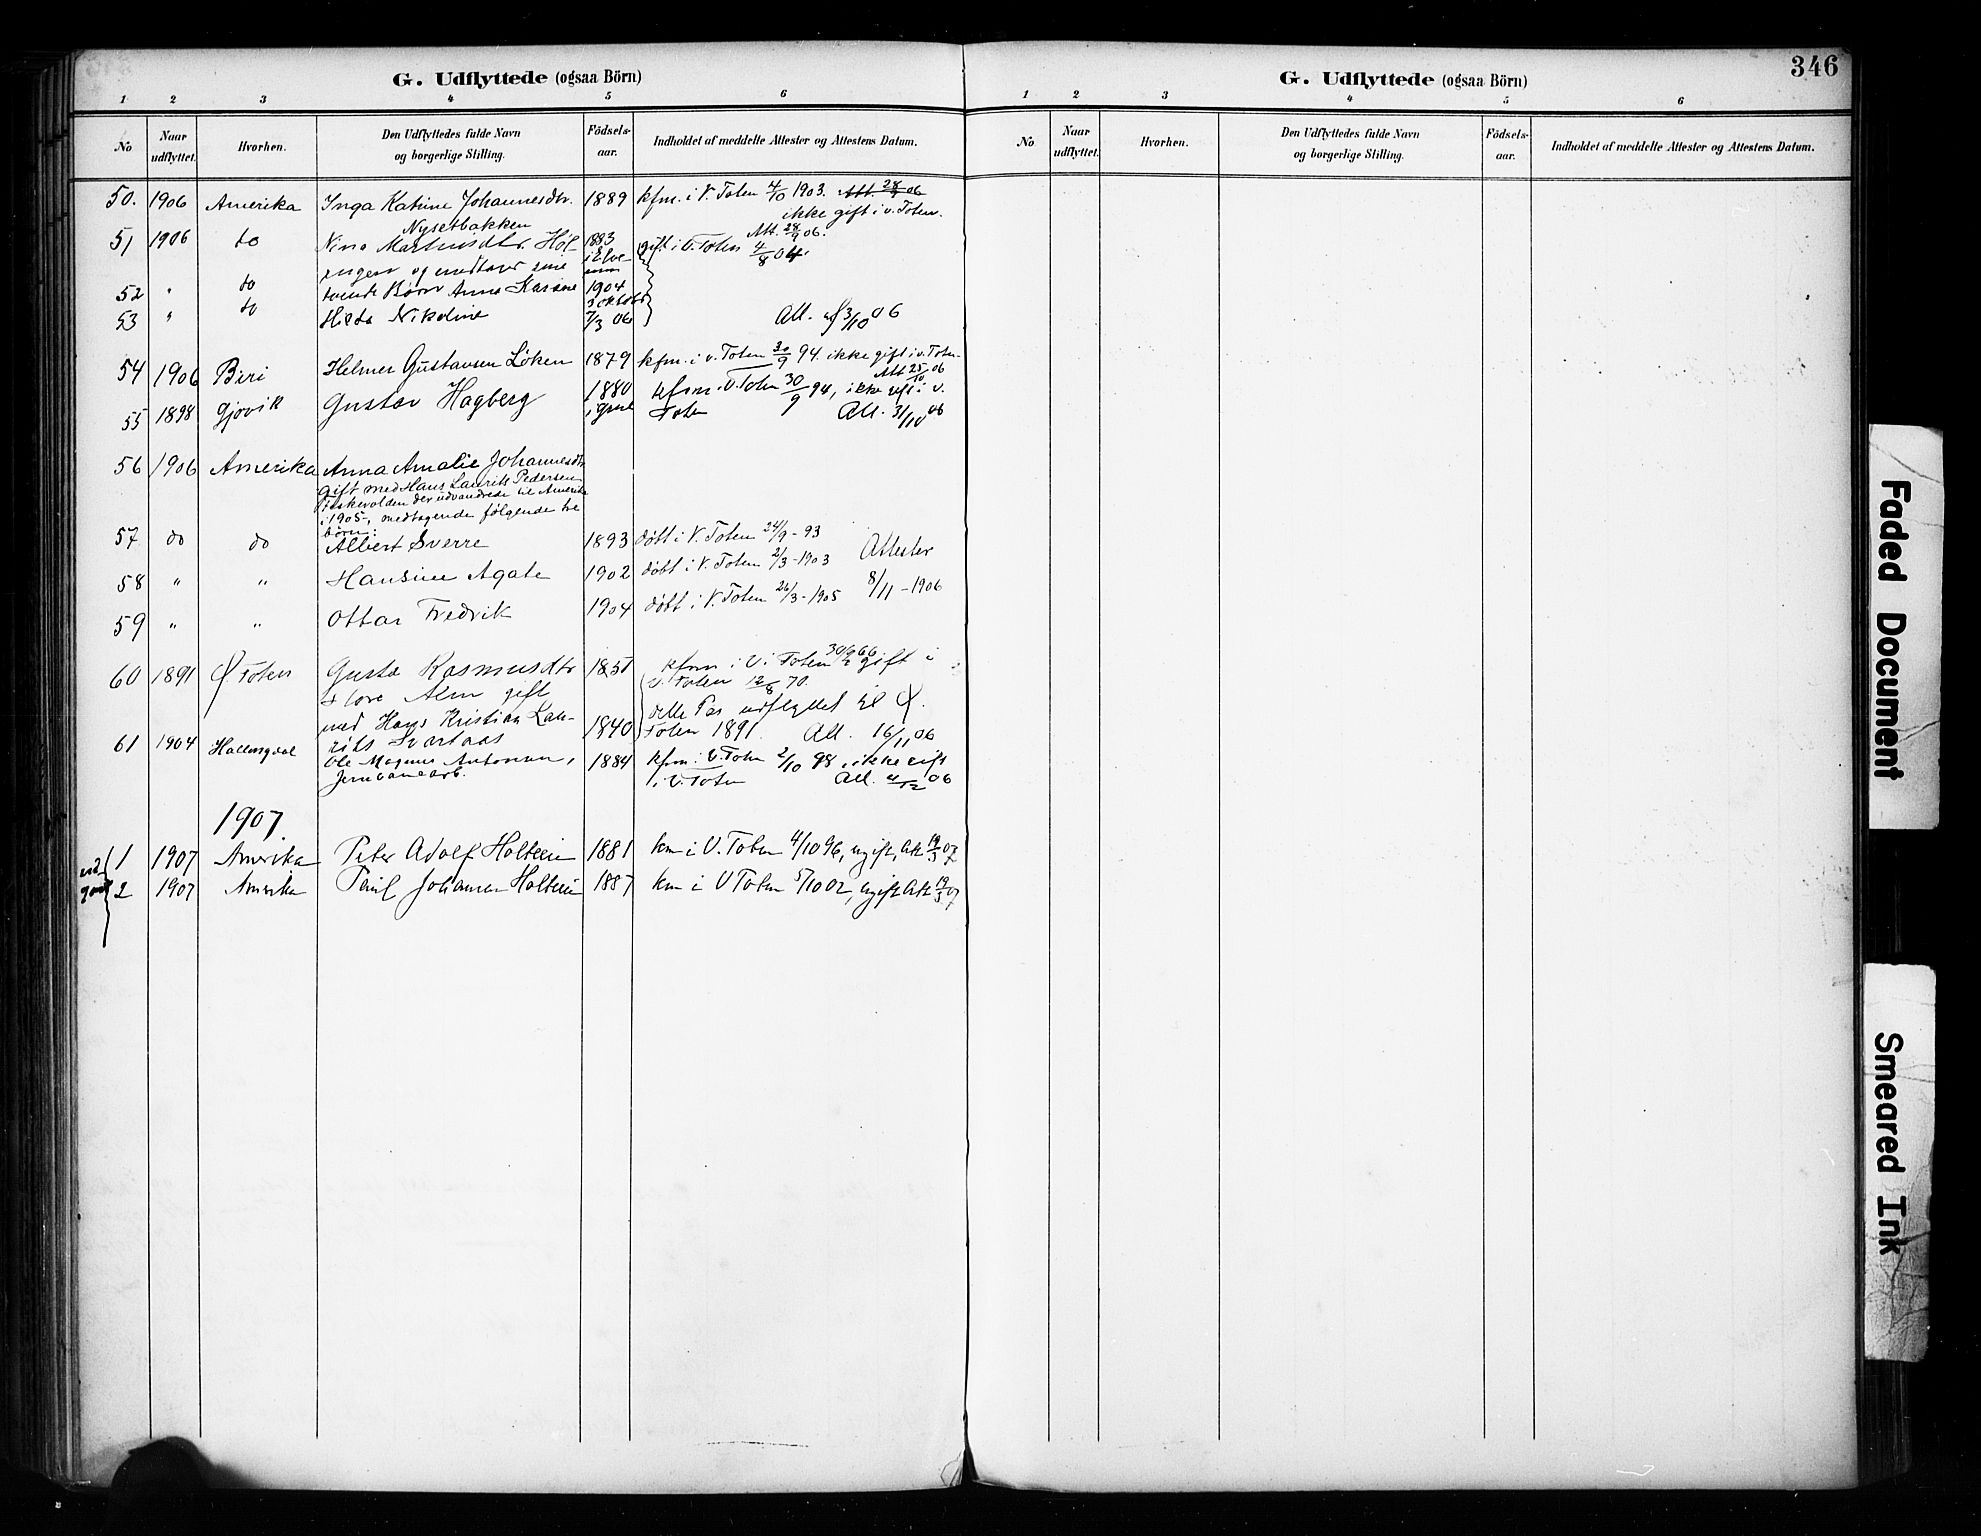 G. Udflyttede (ogsaa Börn)
1 2 3 4 5 6
No Naar udflyttet. Hvorhen. Den Udflyttedes fulde Navn og borgerlige Stilling. Födsels-aar. Indholdet af meddelte Attester og Attestens Datum.
50. 1906 Amerika Inga Katrine Johannesdtr. 1889 kfm. i V. Toten 4/10 1903. Att. 28/9 06
Nysetbakken ikke gift i v. Toten.
Att. 28/9 06.
51 1906 do Nina Martinsdtr. Høl- 1883 gift i V. Toten 4/8 04.
engen og medtager sine i Elve-
rum
52 " do tvende Børn Anna Karine 1904
3 oktober
53 " do Hilda Nikoline 7/3 06 Att. af 3/10 06
54 1906 Biri Helmer Gustavsen Löken 1879 kfm. i v. Toten 30/9 94. ikke gift i v. Toten.
Att 25/10 06
55 1898 Gjövik Gustav Hagberg 1880 kfm i V. Toten 30/9 94, ikke gift i V.
Toten Att. 31/10 06
56 1906 Amerika Anna Amalie Johannesdtr
gift med Hans Laurits Pedersen
der udvandrede til Amerika
i 1905, medtagende følgende tre
børn:
57 do do Albert Sverre 1893 döbt i V. Toten 24/9-93
58 " " Hansine Agate 1902 döbt i V. Toten 2/3-1903 Attester
59 " " Ottar Fredrik 1904 döbt i V. Toten 26/3-1905 8/11-1906
60 1891 Ø. Toten Gusta Rasmusdtr 1851 kfm i V. Toten 30/9 66 gift i
store Alm gift V. Toten 12/8 70.
med Hans Kristian Lau- 1840 dette Par udflyttet til Ø.
rits Svartaas Toten 1891. Att. 16/11 06
61 1904 Hallingdal Ole Magnus Antonsen, 1884 kfm. i V. Toten 2/10 98, ikke gift
Jernbanearb. i V. Toten Att. 4/12 06
1907.
1 1907 Amerika Peter Adolf Holteie 1881 km i V. Toten 4/10 96, ugift, Att 19/3 07
2 1907 Amerika Paul Johansen Holteie 1887 km i V Toten 5/10 02, ugift Att 19/3 07
346
G. Udflyttede (ogsaa Börn)
1 2 3 4 5 6
No Naar udflyttet. Hvorhen. Den Udflyttedes fulde Navn og borgerlige Stilling. Födsels-aar. Indholdet af meddelte Attester og Attestens Datum.
Faded Document
Smeared Ink